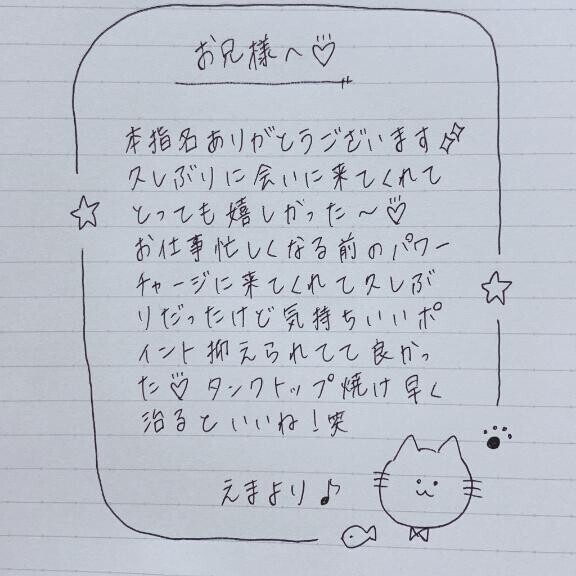 お兄様へ♡
本指名ありがとうございます
久しぶりに会いに来てくれて
とっても嬉しかった〜♡
お仕事忙しくなる前のパワー
チャージに来てくれて久しぶ
りだったけど気持ちいいポ
イント抑えられてて良かっ
た♡タンクトップ焼け早く
治るといいね!笑
えまより♪